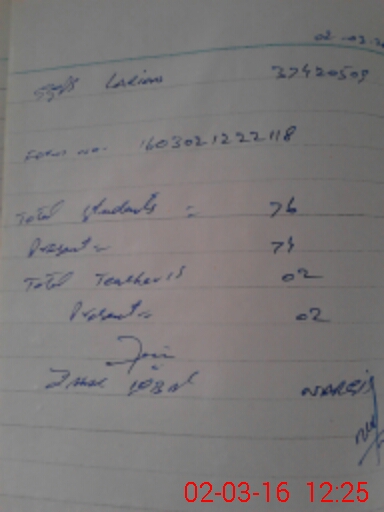 02-03-
GGPS Larian 37420509
Form no. 1603021222118
Total students = 76
Present = 74
Total Teachers 02
Present = 02
Iqbal NARGIS
02-03-16 12:25